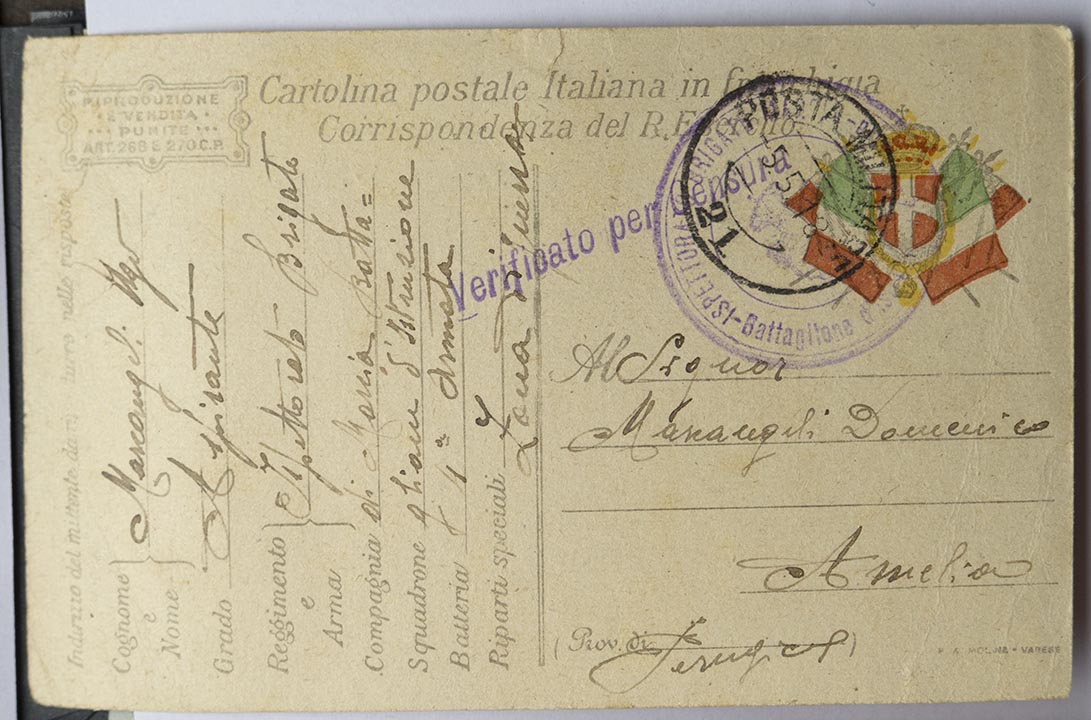 RIPRODUZIONE
E VENDITA
PUNITE
ART. 268 E 270 C.P.
Cartolina postale Italiana in franchigia
Corrispondenza del R. Esercito
POSTA-MILITARE
15.5.18
Verificato per censura
Battaglione d'Is
Al Signor
Marangeli Domenico
Amelia
(Prov. di Perugia)
MOLINA - VARESE
Indirizzo del mittente da ri nelle risposte
Cognome e Nome
Marcangeli Ugo
Grado Aspirante
Reggimento e Arma
Ispettorato Brigate
Compagnia di Marcia Batta=
Squadrone glioni d'Istruzione
Batteria 1ª Armata
Riparti speciali Zona di guerra